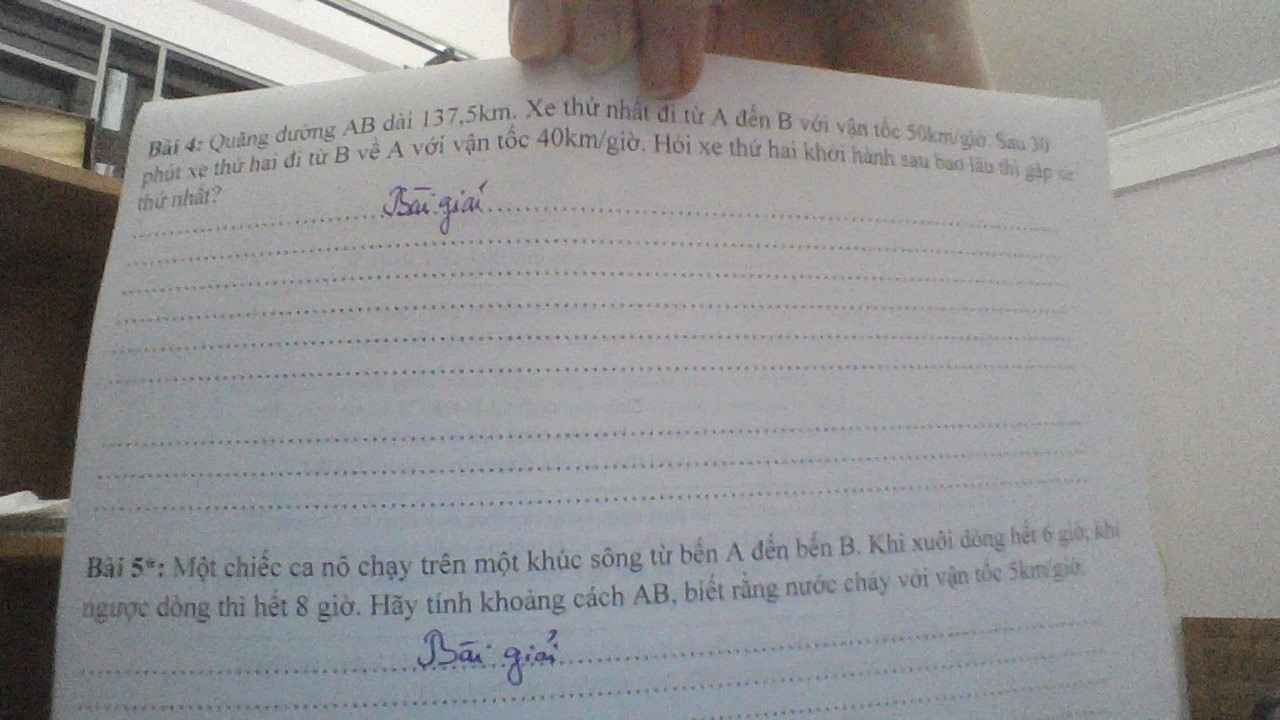 Bài 4: Quãng đường AB dài 137,5km. Xe thứ nhất đi từ A đến B với vận tốc 50km/giờ. Sau 30
phút xe thứ hai đi từ B về A với vận tốc 40km/giờ. Hỏi xe thứ hai khởi hành sau bao lâu thì gặp xe
thứ nhất?
Bài giải
Bài 5*: Một chiếc ca nô chạy trên một khúc sông từ bến A đến bến B. Khi xuôi dòng hết 6 giờ, khi
ngược dòng thì hết 8 giờ. Hãy tính khoảng cách AB, biết rằng nước chảy với vận tốc 5km/giờ.
Bài giải